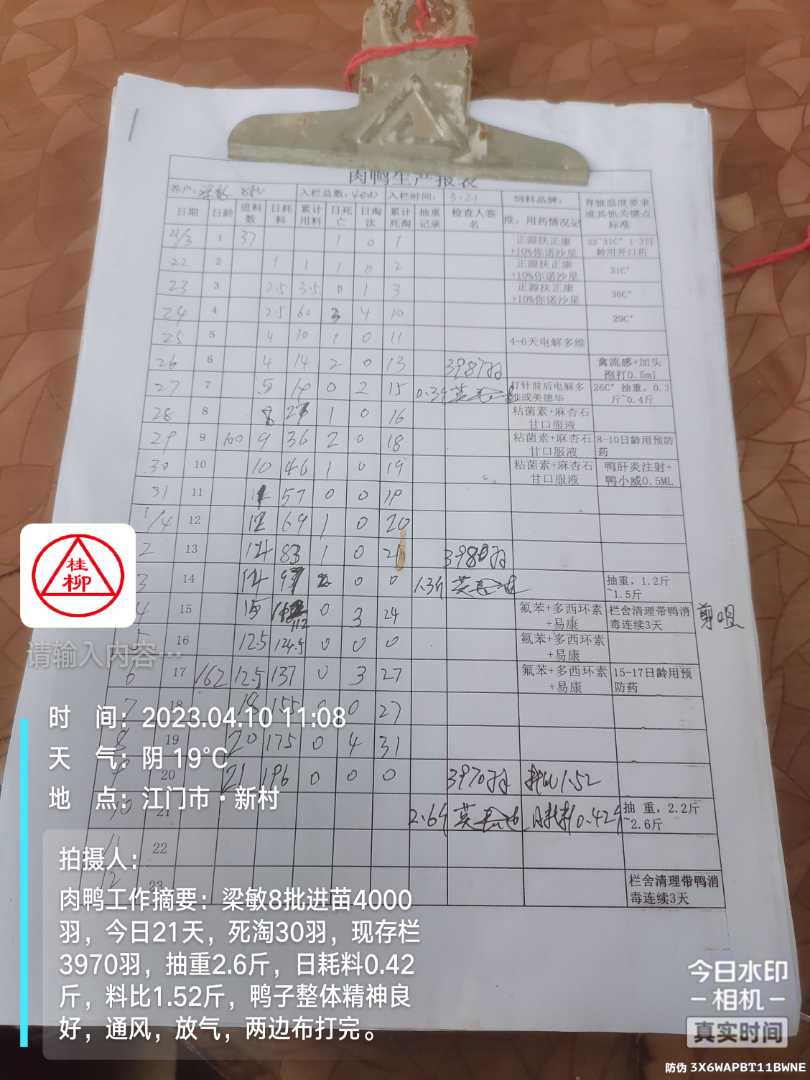 肉鸭生产报表
客户: 入栏总数: 入栏时间: 3.21 饲料品牌: 育雏温度要求或其他关键点标准
日期 日龄 进料数 日耗料 累计用料 日死亡 日淘汰 累计死淘 抽重记录 检查人签名 用药情况记
21/3 1 37 1 0 1 正源扶正康+10%你诺沙星
22 2 1 1 1 0 2 正源扶正康+10%你诺沙星 31C°
23 3 2.5 3.5 0 1 3 正源扶正康+10%你诺沙星 30C°
24 4 2.5 60 3 4 10 29C°
25 5 4 10 1 0 11 4-6天电解多维
26 6 4 14 2 0 13 3987羽 禽流感+加头孢打0.5ml
27 7 5 0 2 15 0.39 打针前后电解多维或美德华 26C° 抽重,0.3斤~0.4斤
28 8 8 27 1 0 16 粘菌素+麻杏石甘口服液
29 9 100 9 36 2 0 18 粘菌素+麻杏石甘口服液 8-10日龄用预防药
30 10 10 46 1 0 19 粘菌素+麻杏石甘口服液 鸭肝炎注射+鸭小威0.5ML
31 11 11 57 0 0 19
1/4 12 12 69 1 0 20
2 13 14 83 1 0 21 3980羽
3 14 14 97 2 0 0 1.3斤 抽重,1.2斤~1.5斤
4 15 15 112 0 3 24 氟苯+多西环素+易康 栏舍清理带鸭消毒连续3天 剪咀
5 16 12.5 124.5 0 0 0 氟苯+多西环素+易康
6 17 162 12.5 137 0 3 27 氟苯+多西环素+易康 15-17日龄用预防药
7 18 18 155 0 0 27
8 19 20 175 0 4 31
9 20 21 196 0 0 0 3970羽 料比1.52
10 21 2.6斤 日耗料0.42斤 抽重,2.2斤~2.6斤
11 22
12 23 栏舍清理带鸭消毒连续3天
桂柳
请输入内容…
时 间:2023.04.10 11:08
天 气:阴 19℃
地 点:江门市·新村
拍摄人:
肉鸭工作摘要:梁敏8批进苗4000
羽,今日21天,死淘30羽,现存栏
3970羽,抽重2.6斤,日耗料0.42
斤,料比1.52斤,鸭子整体精神良
好,通风,放气,两边布打完。
今日水印
相机
真实时间
防伪 3X6WAPBT11BWNE